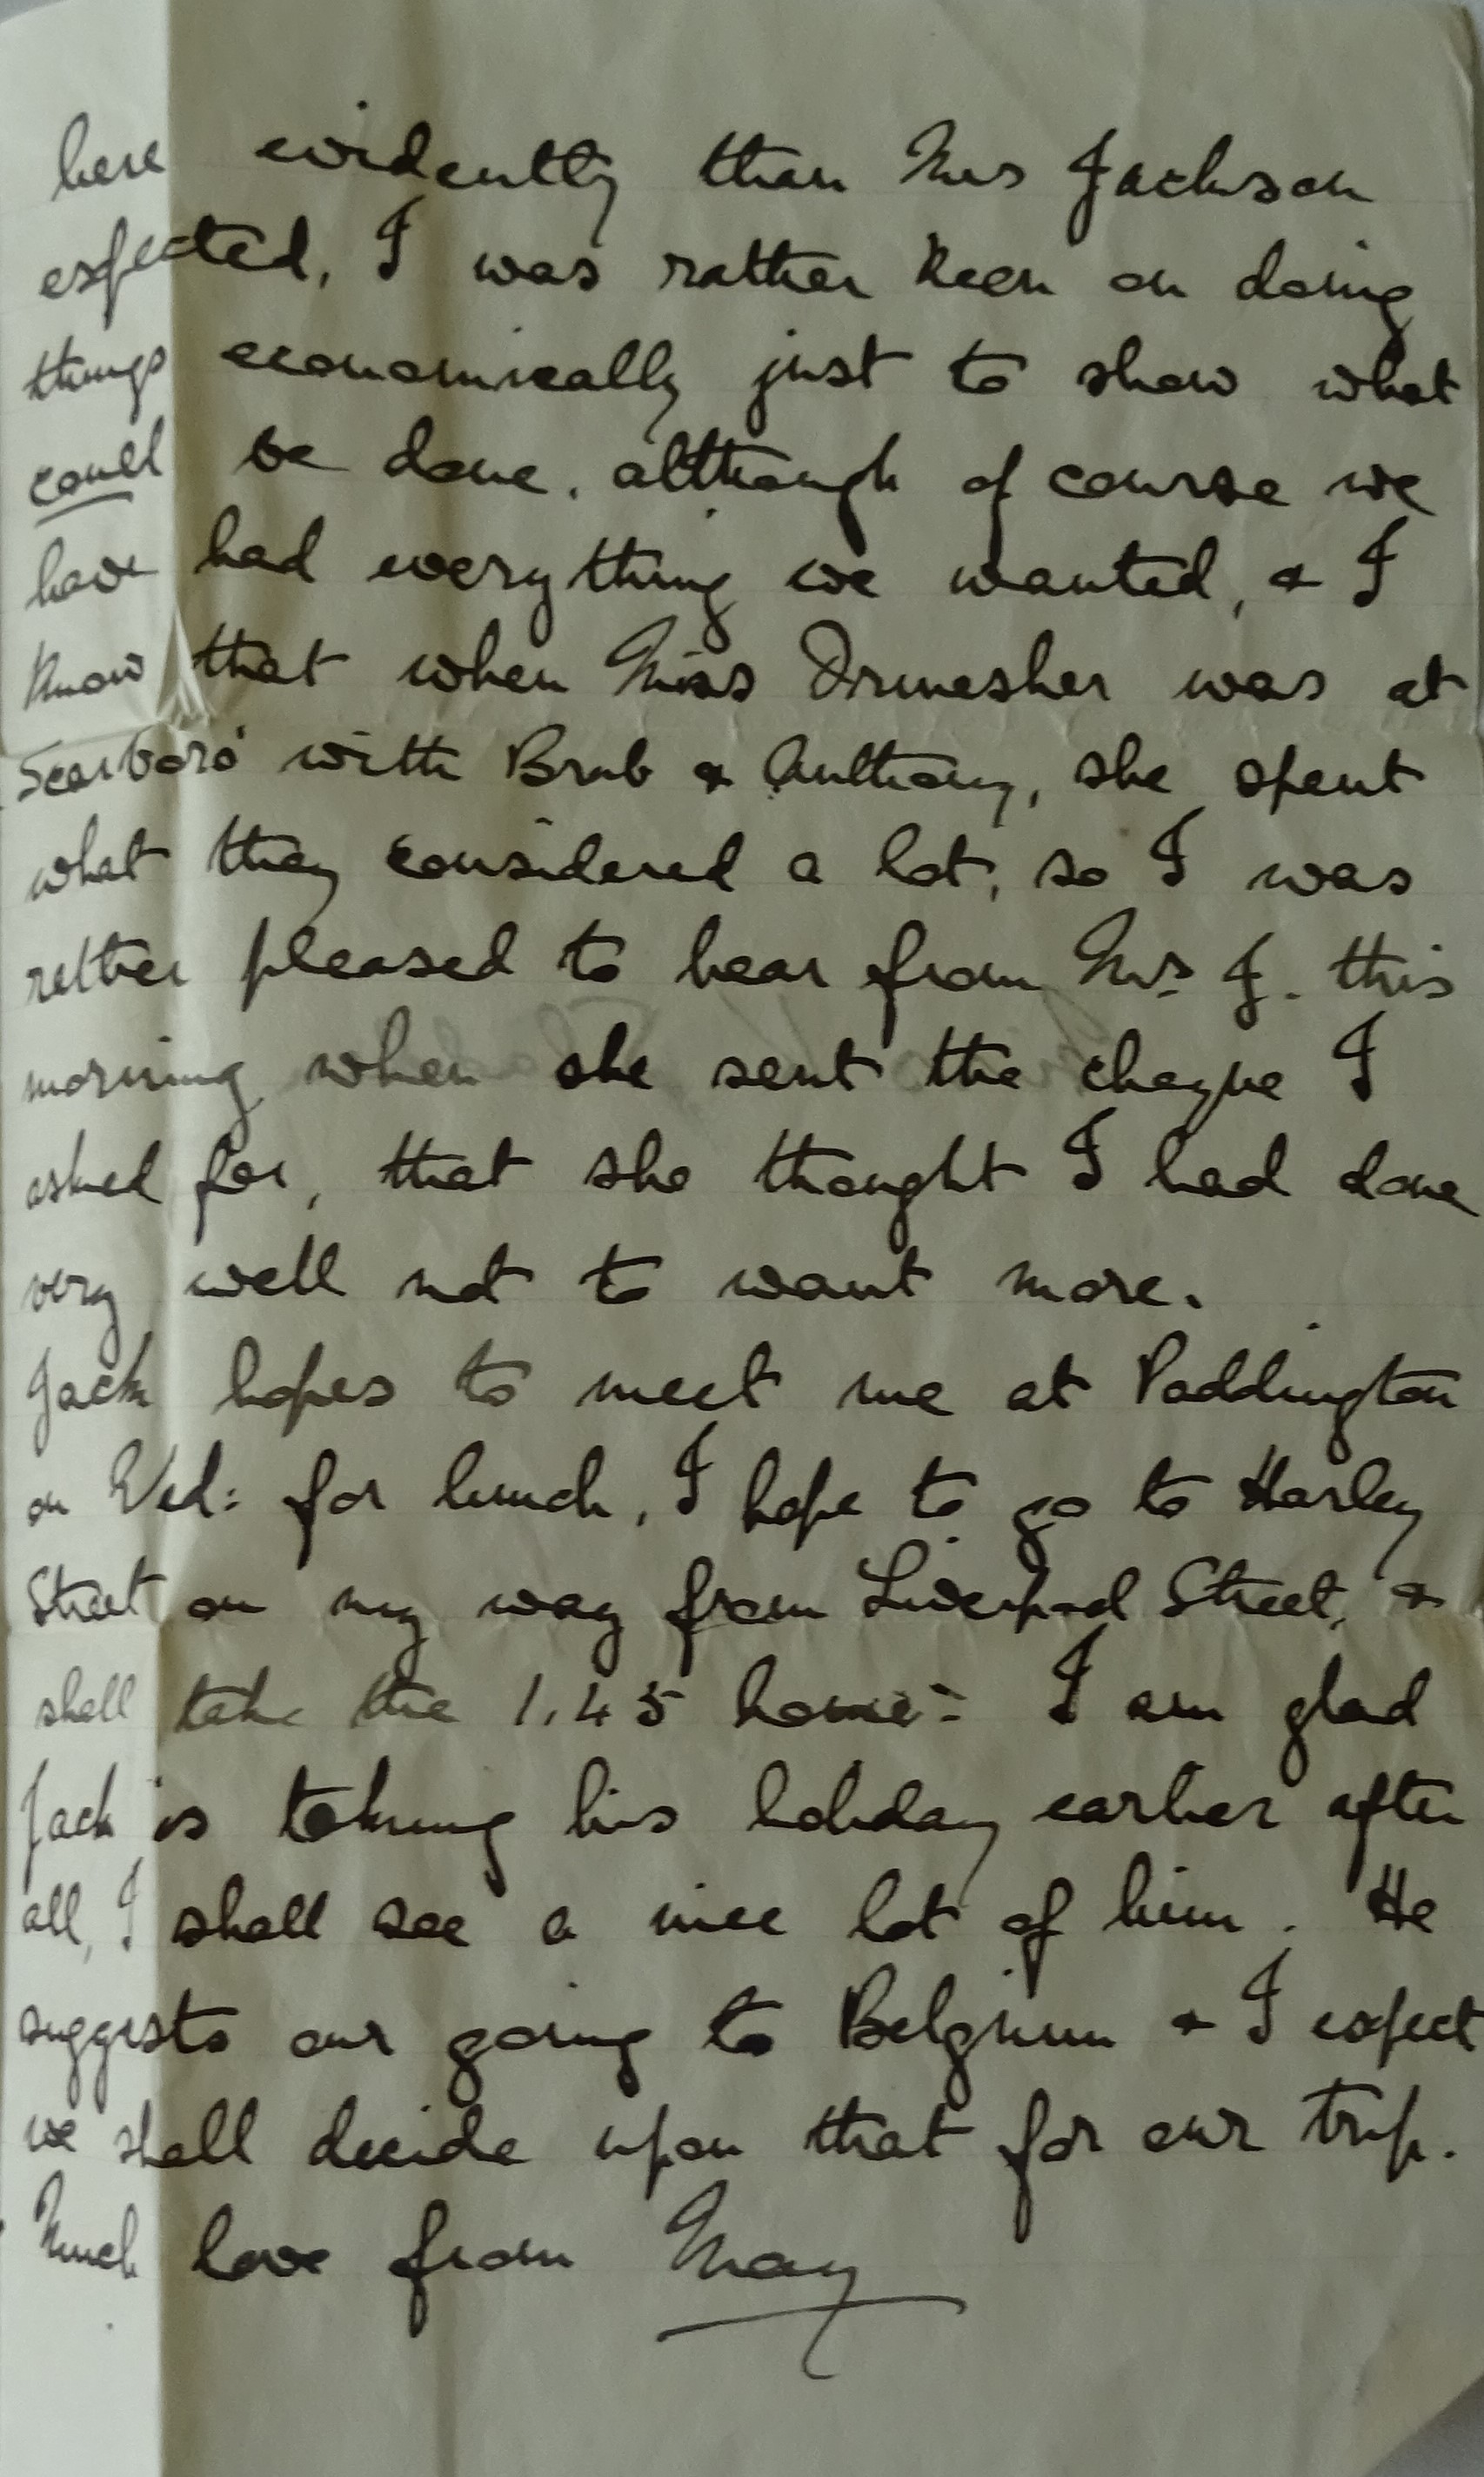 here evidently than Mrs Jackson
expected, I was rather keen on doing
things economically just to show what
could be done, although of course we
have had everything we wanted, & I
know that when Miss Ormesher was at
Scarboro' with Brab & Anthony, she spent
what they considered a lot, so I was
rather pleased to hear from Mrs J. this
morning when she sent the cheque I
asked for, that she thought I had done
very well not to want more.
Jack hopes to meet me at Paddington
on Wed: for lunch, I hope to go to Harley
Street on my way from Liverpool Street, &
shall take the 1.45 home = I am glad
Jack is taking his holiday earlier after
all, I shall see a nice lot of him. He
suggests our going to Belgium & I expect
we shall decide upon that for our trip.
Much love from May